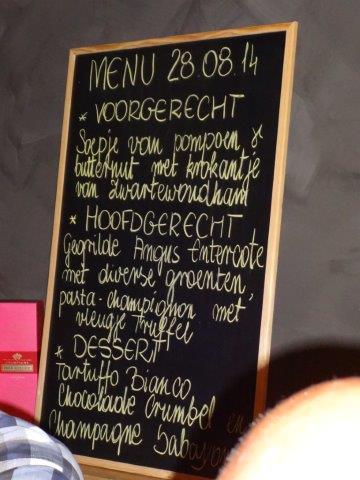 MENU 28.08.14
* VOORGERECHT
Soepje van pompoen &
butternut met krokantje
van zwartewoudham
* HOOFDGERECHT
Gegrilde Angus Entercote
met diverse groenten,
pasta-champignon met
vleugje Truffel
* DESSERT
Tartuffo Bianco
Chocolade Crumbel en
Champagne Sabayon